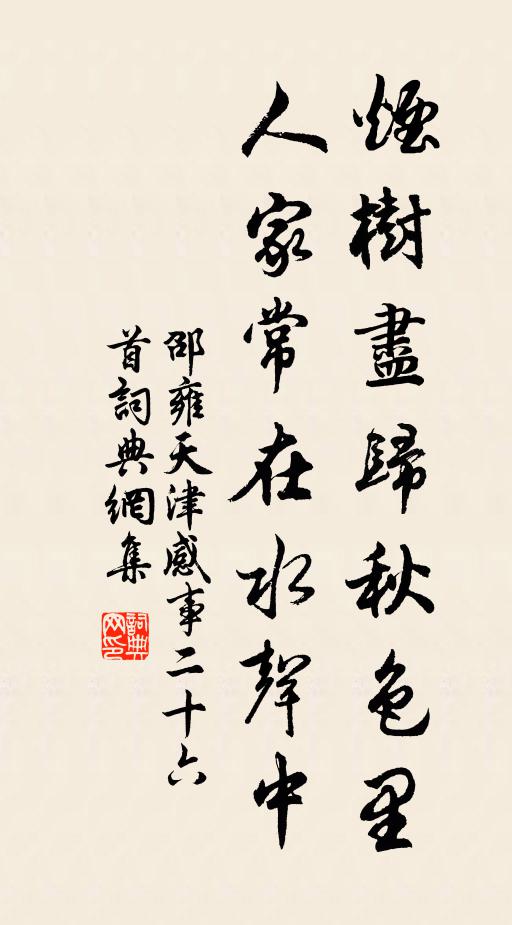 煙樹盡歸秋色里
人家常在水聲中
邵雍天津感事二十六
首詞典網集
詞典网印